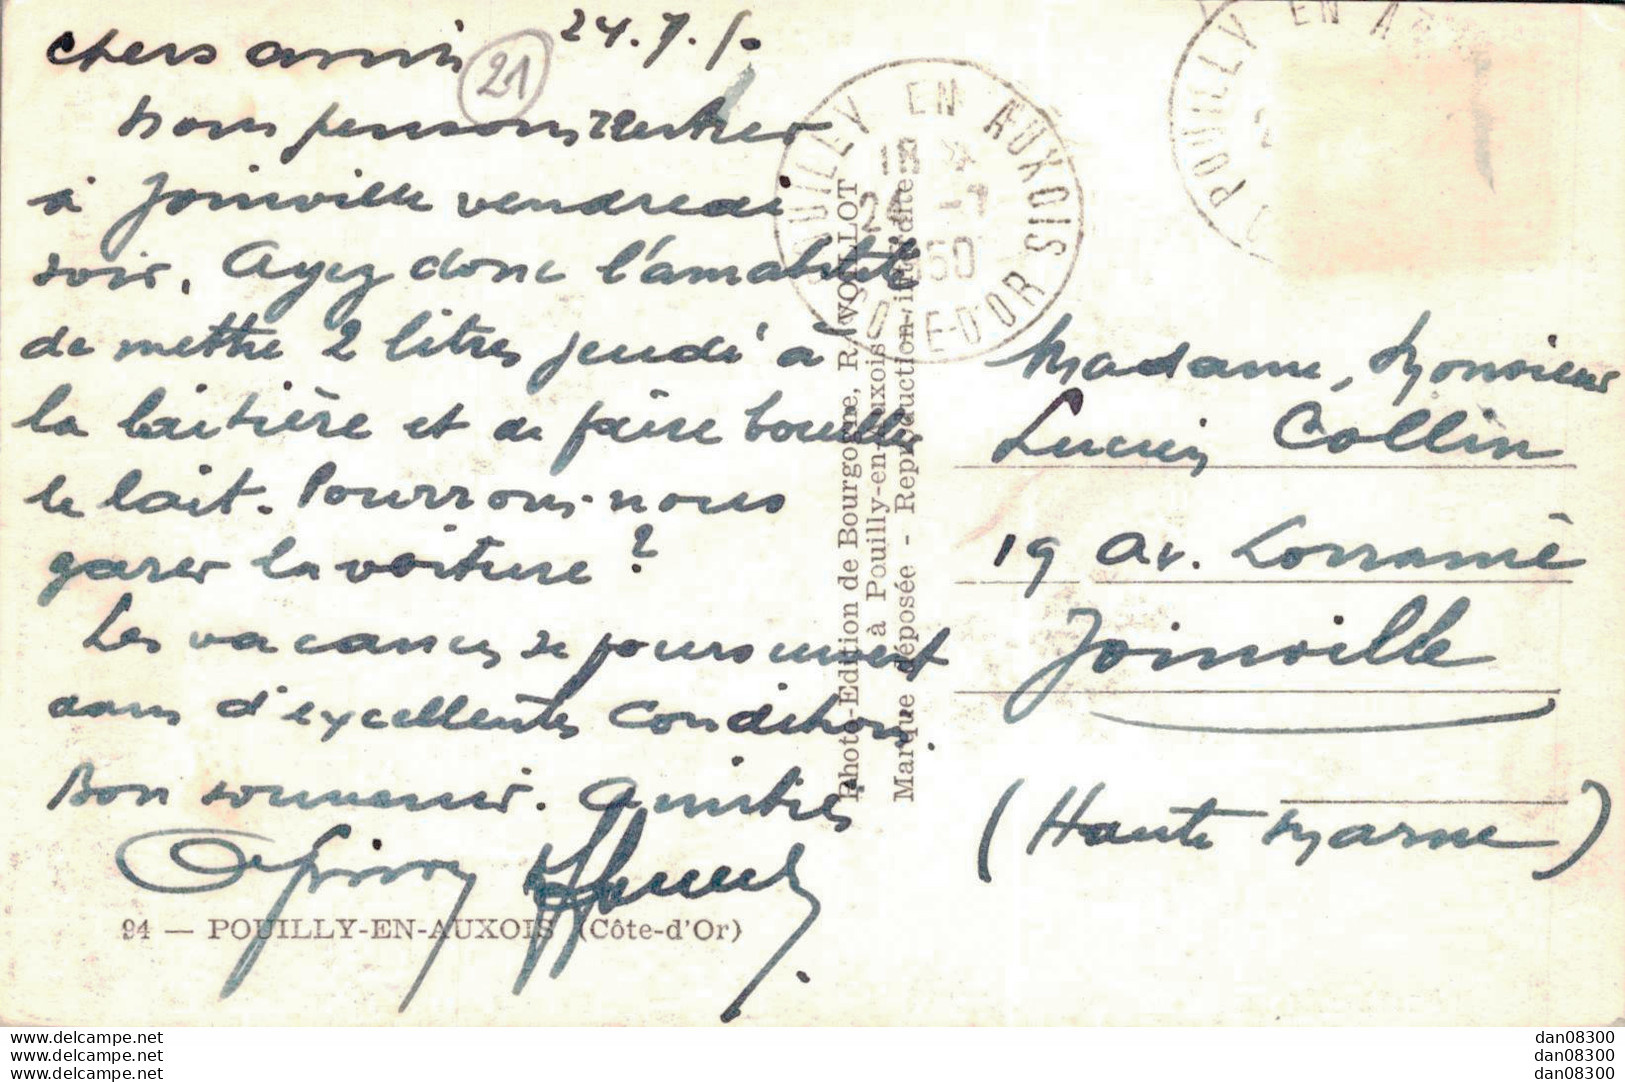 chers amis 24.7.
21
nous pensons rentrer
à Joinville vendredi
soir. Ayez donc l'amabilité
de mettre 2 litres jeudi à
la laitière et de faire bouillir
le lait. Pourrons-nous
garer la voiture ?
Les vacances se poursuivent
dans d'excellentes conditions.
Bon souvenir. Amitiés
94 — POUILLY-EN-AUXOIS (Côte-d'Or)
Photo-Edition de Bourgogne, R. VOILLOT
à Pouilly-en-Auxois
Marque déposée - Reproduction interdite
POUILLY EN AUXOIS
24 -7
1950
COTE-D'OR
POUILLY EN
Madame, Monsieur
Lucien Collin
19 av. Lorraine
Joinville
(Haute Marne)
delcampe.net
delcampe.net
delcampe.net
dan08300
dan08300
dan08300